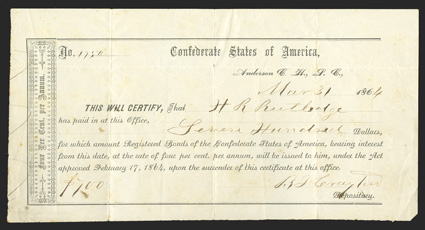 Four Per Cent. per Annum.
No. 1750 Confederate States of America,
Anderson C. H., S. C.,
Mar 31 1864
THIS WILL CERTIFY, That H R Rutledge
has paid in at this Office, Seven Hundred Dollars,
for which amount Registered Bonds of the Confederate States of America, bearing interest
from this date, at the rate of four per cent. per annum, will be issued to him, under the Act
approved February 17, 1864, upon the surrender of this certificate at this office.
$700
Depositary.